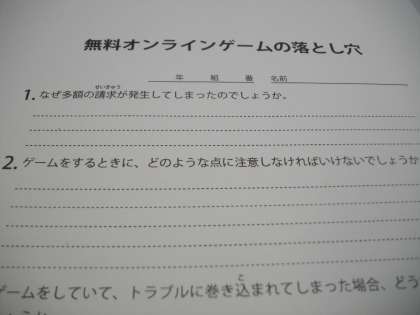 無料オンラインゲームの落とし穴
年 組 番 名前
せいきゅう
1. なぜ多額の請求が発生してしまったのでしょうか。
2. ゲームをするときに、どのような点に注意しなければいけないでしょうか
こ
ゲームをしていて、トラブルに巻き込まれてしまった場合、どう